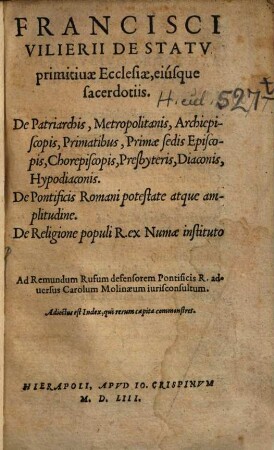 FRANCISCI
VILIERII DE STATV
primitiuæ Ecclesiæ, eiúsque
sacerdotiis.
H. eccl. 527
De Patriarchis, Metropolitanis, Archiepi-
scopis, Primatibus, Primæ sedis Episco-
pis, Chorepiscopis, Presbyteris, Diaconis,
Hypodiaconis.
De Pontificis Romani potestate atque am-
plitudine.
De Religione populi R. ex Numæ instituto
Ad Remundum Rufum defensorem Pontificis R. ad-
uersus Carolum Molinæum iurisconsultum.
Adiectus est Index, qui rerum capita commonstret.
HIERAPOLI, APVD IO. CRISPINVM
M. D. LIII.